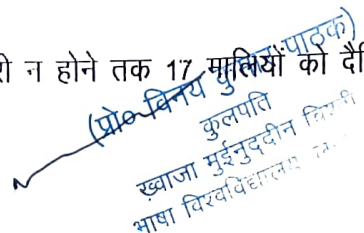 न होने तक 17 मालियों को
(प्रो० विनय कुमार पाठक)
कुलपति
ख़्वाजा मुईनुद्दीन
भाषा विश्वविद्यालय